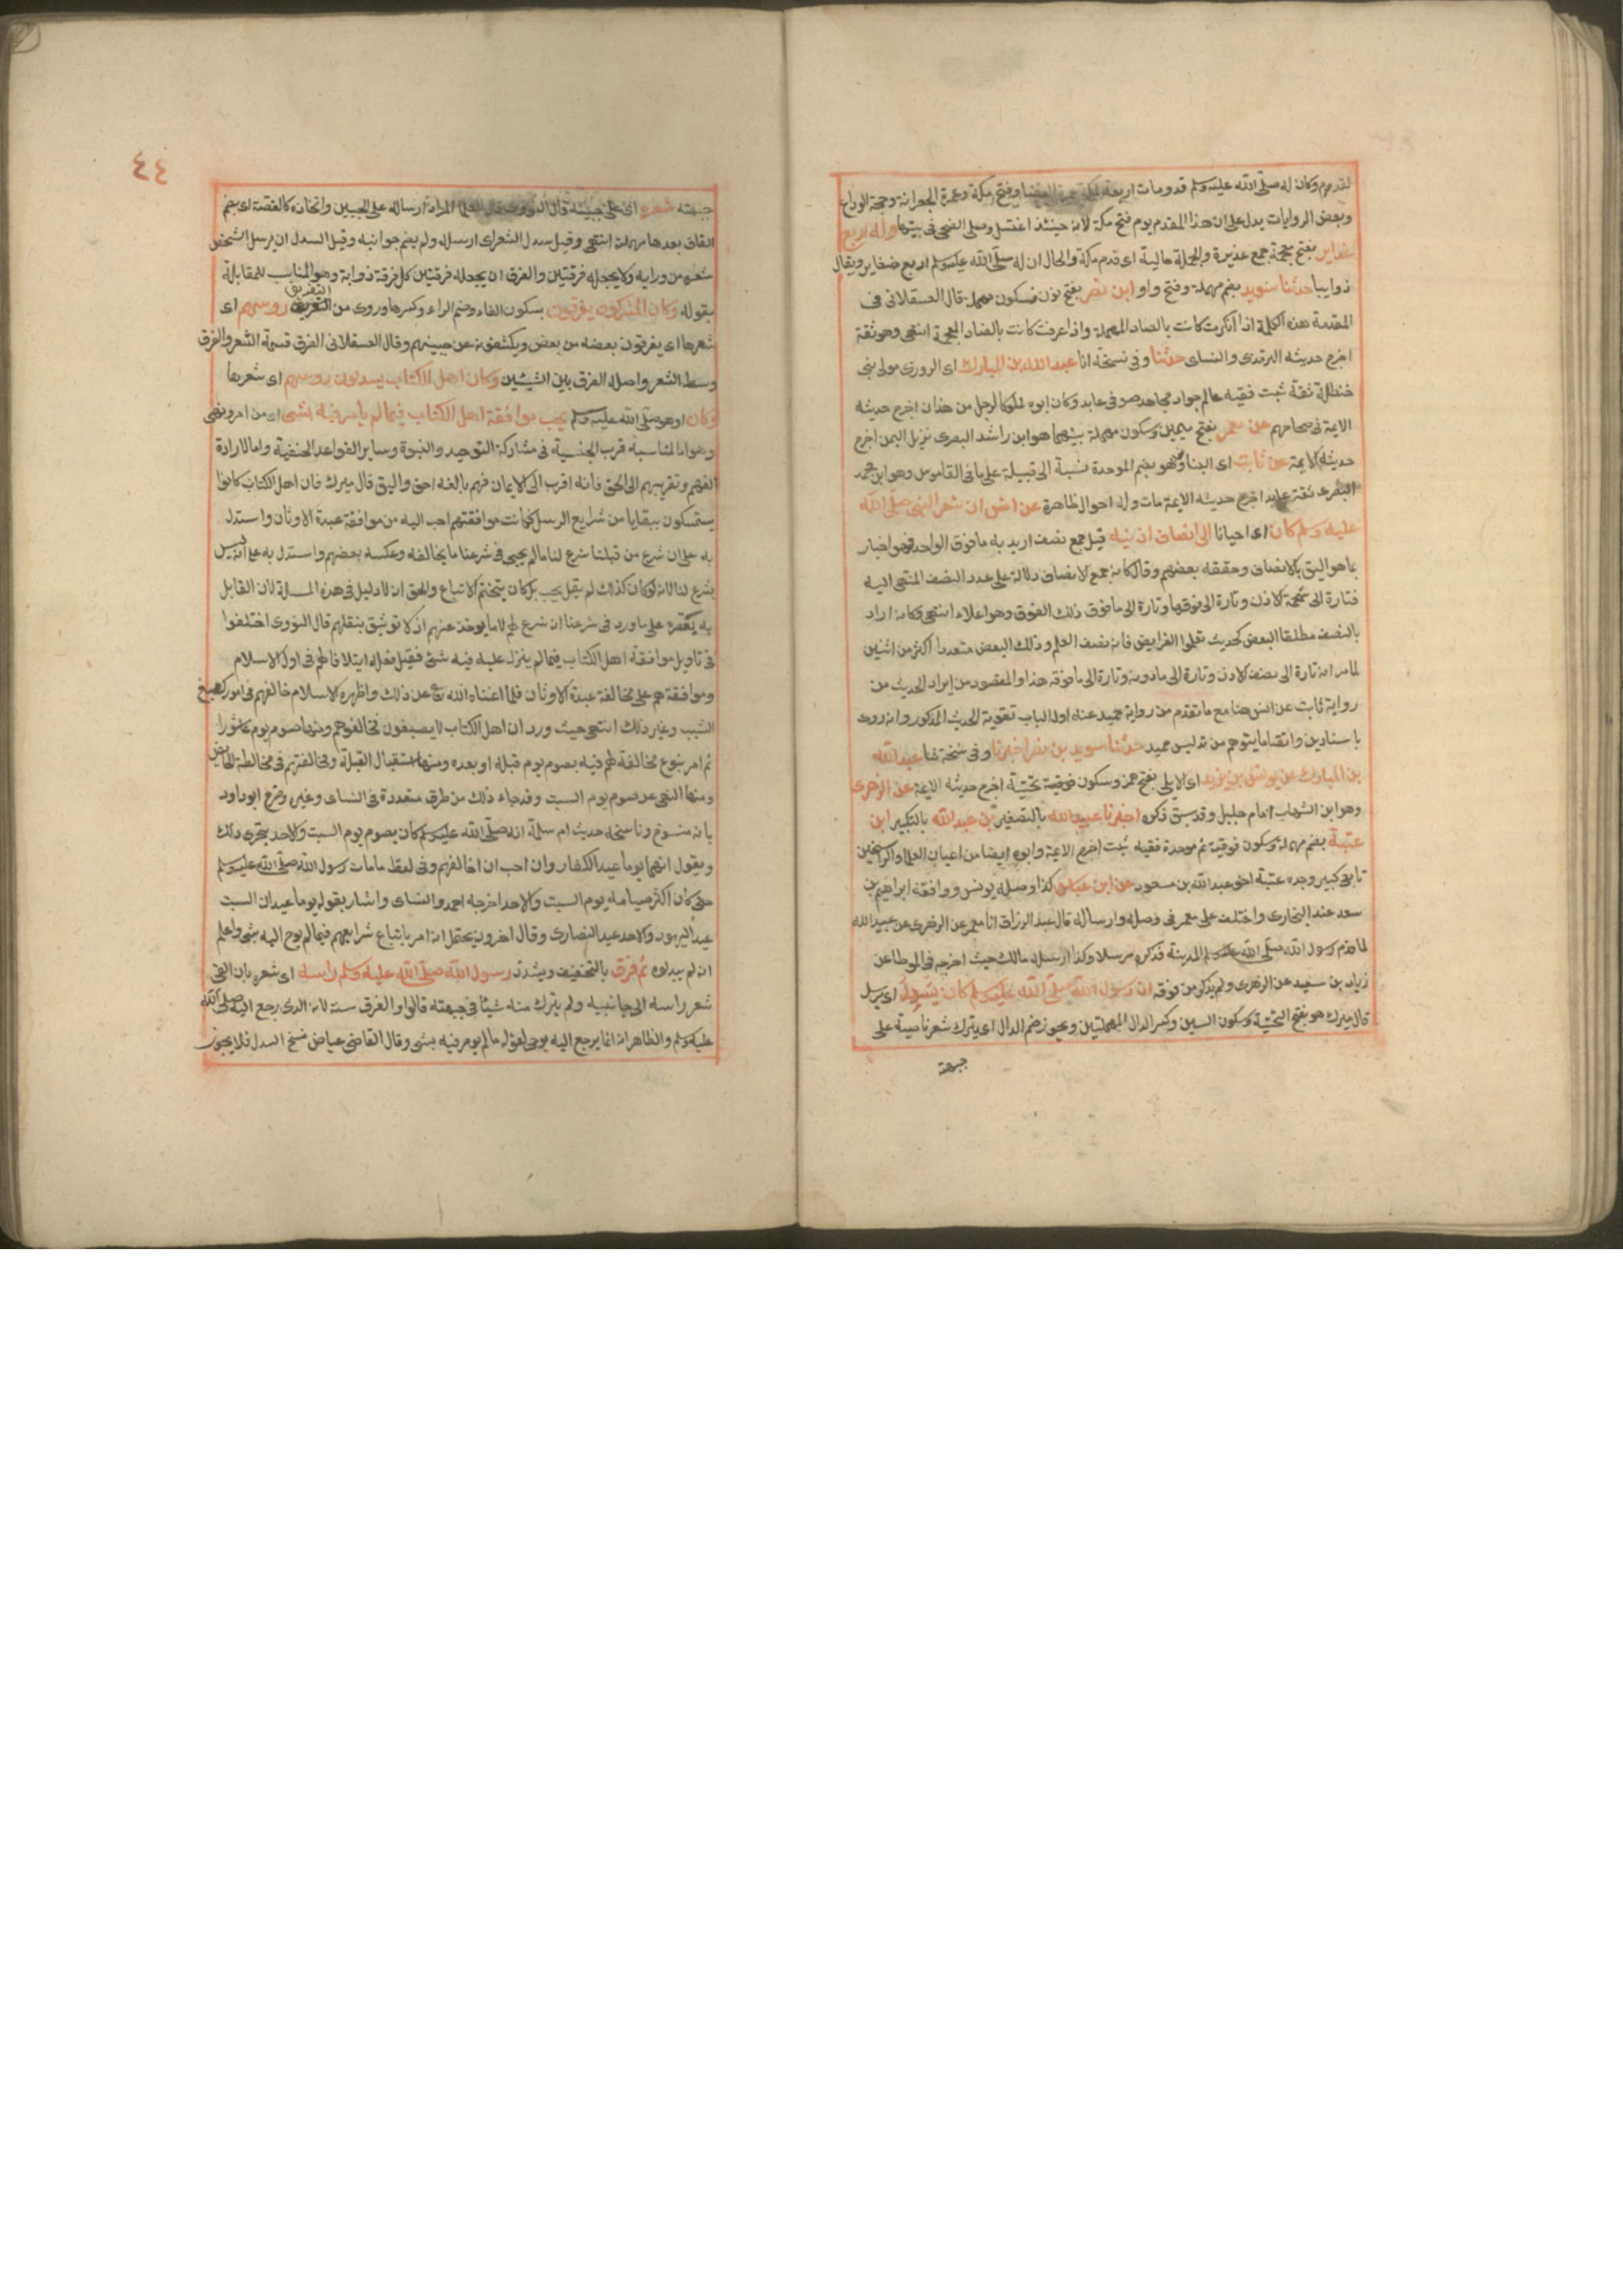 لقدوم وكان له صلى الله عليه وسلم قدومات اربعة بمكة عمرة القضا وفتح مكة وعمرة الجعرانة وحجة الوداع
وبعض الروايات يدل على ان هذا المقدم يوم فتح مكة لانه حينئذ اغتسل وصلى الضحى فى بيتها وله اربع
غداير بفتح معجمة جمع غديرة والجملة حالية اى قدم مكة والحال ان له صلى الله عليه وسلم اربع ضفاير ويقال
ذوايبا حدثنا سويد بضم مهملة وفتح واو ابن نصر بفتح نون فسكون مهملة قال العسقلانى فى
المقدمة هذه الكلمة اذا انكرت كانت بالصاد المهملة واذا عرفت كانت بالضاد المعجمة انتهى وهو ثقة
اخرج حديثه الترمذى والنساى حدثنا وفى نسخة انا عبد الله بن المبارك اى المروزى مولى بنى
حنظلة ثقة ثبت فقيه عالم جواد مجاهد صوفى عابد وكان ابوه مملوكا لرجل من همدان اخرج حديثه
الايمة فى صحاحهم عن معمر بفتح ميمين وسكون مهملة بينهما هو ابن راشد البصرى نزيل اليمن اخرج
حديثه الايمة عن ثابت اى البنانى وهو بضم الموحدة نسبة الى قبيلة على ما فى القاموس وهو ابن محمد
البصرى ثقة عابد اخرج حديثه الايمة مات وله احوال ظاهرة عن انس ان شعر النبى صلى الله
عليه وسلم كان اى احيانا الى انصاف اذنيه قيل جمع نصف اريد به ما فوق الواحد فهو اخبار
بما هو اليق بالانصاف وحققه بعضهم وقال كانه جمع الانصاف دلالة على عدد النصف المنتهى اليه
فتارة الى شحمة الاذن وتارة الى فوقها وتارة الى ما فوق ذلك الفوق وهو اعلاه انتهى وكانه اراد
بالنصف مطلقا البعض كحديث تعلموا الفرايض فانه نصف العلم وذلك البعض متعدد اكثر من اثنين
لما مر انه تارة الى نصف الاذن وتارة الى ما دونه وتارة الى ما فوقه هذا والمقصود من ايراد الحديث من
رواية ثابت عن انس هنا مع ما تقدم من رواية حميد عنه اول الباب تقوية الحديث المذكور وانه روى
باسنادين وانتفا ما يتوهم من تدليس حميد حدثنا سويد بن نصر اخبرنا وفى نسخة ثنا عبد الله
بن المبارك عن يونس بن يزيد اى الايلى بفتح همز وسكون تحتية اخرج حديثه الايمة عن الزهرى
وهو ابن الشهاب امام جليل وقد سبق ذكره اخبرنا عبيد الله بالتصغير بن عبد الله بالتكبير ابن
عتبة بضم مهملة وسكون فوقية ثم موحدة فقيه ثبت اخرج الايمة وابوه ايضا من اعيان العلما والراسخين
تابعى كبير وجده عتبة اخو عبد الله بن مسعود عن ابن عباس كذا وصله يونس ووافقه ابراهيم بن
سعد عند البخارى واختلف على معمر فى وصله وارساله قال عبد الرزاق انا معمر عن الزهرى عن عبيد الله
لما قدم رسول الله صلى الله عليه وسلم المدينة فذكره مرسلا وكذا ارسله مالك حيث اخرجه فى الموطا عن
زياد بن سعيد عن الزهرى ولم يذكر من فوقه ان رسول الله صلى الله عليه وسلم كان يسدل اى يرسل
قال ميرك هو بفتح التحتية وسكون السين وكسر الدال المهملتين ويجوز ضم الدال اى يترك شعر ناصيته على
جبهته
٤٤
جبهته شعره اى على جبينه قال النووى قال العلما المراد ارساله على الجبين واتخاذه كالقصة اى بضم
القاف بعدها مهملة انتهى وقيل سدل الشعر اى ارسله ولم يضم جوانبه وقيل السدل ان يرسل الشخص
شعره من ورايه ولا يجعله فرقتين والفرق ان يجعله فرقتين كل فرقة ذوابة وهو المناسب للمقابلة
بقوله وكان المشركون يفرقون بسكون الفاء وضم الراء وكسرها وروى من التفريق رؤسهم اى
شعرها اى يفرقون بعضه من بعض ويكشفونه عن جبينهم وقال العسقلانى الفرق قسمة الشعر والفرق
وسط الشعر واصله الفرق بين الشيئين وكان اهل الكتاب يسدلون رؤسهم اى شعرها
وكان اى هو صلى الله عليه وسلم يحب موافقة اهل الكتاب فيما لم يأمر فيه بشى اى من امر ونهى
وهو اما لمناسبة قرب الجنسية فى مشاركة التوحيد والنبوة وساير القواعد الحنفية واما لارادة
الفهم وتقريبهم الى الحق فانه اقرب الى الايمان فهم بالغه احق واليق قال ميرك فان اهل الكتاب كانوا
يستمسكون ببقايا من شرايع الرسل فكانت موافقتهم احب اليه من موافقة عبدة الاوثان واستدل
به على ان شرع من قبلنا شرع لنا ما لم يجى فى شرعنا ما يخالفه وعكسه بعضهم واستدل به على انه ليس
بشرع لنا لانه لو كان كذلك لم يقل يحب بل كان يتحتم الاتباع والحق ان لا دليل فى هذه المسئلة لان القايل
به يقصره على ما ورد فى شرعنا ان شرع لهم لا ما يوخذ عنهم اذ لا توثيق بنقلهم قال النووى اختلفوا
فى تاويل موافقة اهل الكتاب فيما لم ينزل عليه فيه شى فقيل فعله ايتلافا لهم فى اول الاسلام
وموافقة لهم على مخالفة عبدة الاوثان فلما اغناه الله تع عن ذلك واظهره الاسلام خالفهم فى امور كصبغ
الشيب وغير ذلك انتهى حيث ورد ان اهل الكتاب لا يصبغون فخالفوهم ومنها صوم يوم عاشورا
ثم امر بنوع مخالفة لهم فيه بصوم يوم قبله او بعده ومنها استقبال القبلة ومخالفتهم فى مخالطة الحايض
ومنها النهى عن صوم يوم السبت وقد جاء ذلك من طرق متعددة فى النساى وغيره وصرح ابو داود
بانه منسوخ وناسخه حديث ام سلمة انه صلى الله عليه وسلم كان يصوم يوم السبت والاحد يتحرى ذلك
ويقول انهما يوما عيد الكفار وان احب ان اخالفهم وفى لفظ ما مات رسول الله صلى الله عليه وسلم
حتى كان اكثر صيامه يوم السبت والاحد اخرجه احمد والنساى واشار بقوله يوما عيد ان السبت
عيد اليهود والاحد عيد النصارى وقال اخرون يحتمل انه امر باتباع شرايعهم فيما لم يوح اليه شى واعلم
انهم لم يبدلوه ثم فرق بالتخفيف ويشدد رسول الله صلى الله عليه وسلم راسه اى شعره بان القى
شعر راسه الى جانبيه ولم يترك منه شيئا فى جبهته قالوا والفرق سنة لانه الذى رجع اليه صلى الله
عليه وسلم والظاهر انه انما يرجع اليه بوحى لقوله ما لم يومر فيه بشى وقال القاضى عياض نسخ السدل فلا يجوز